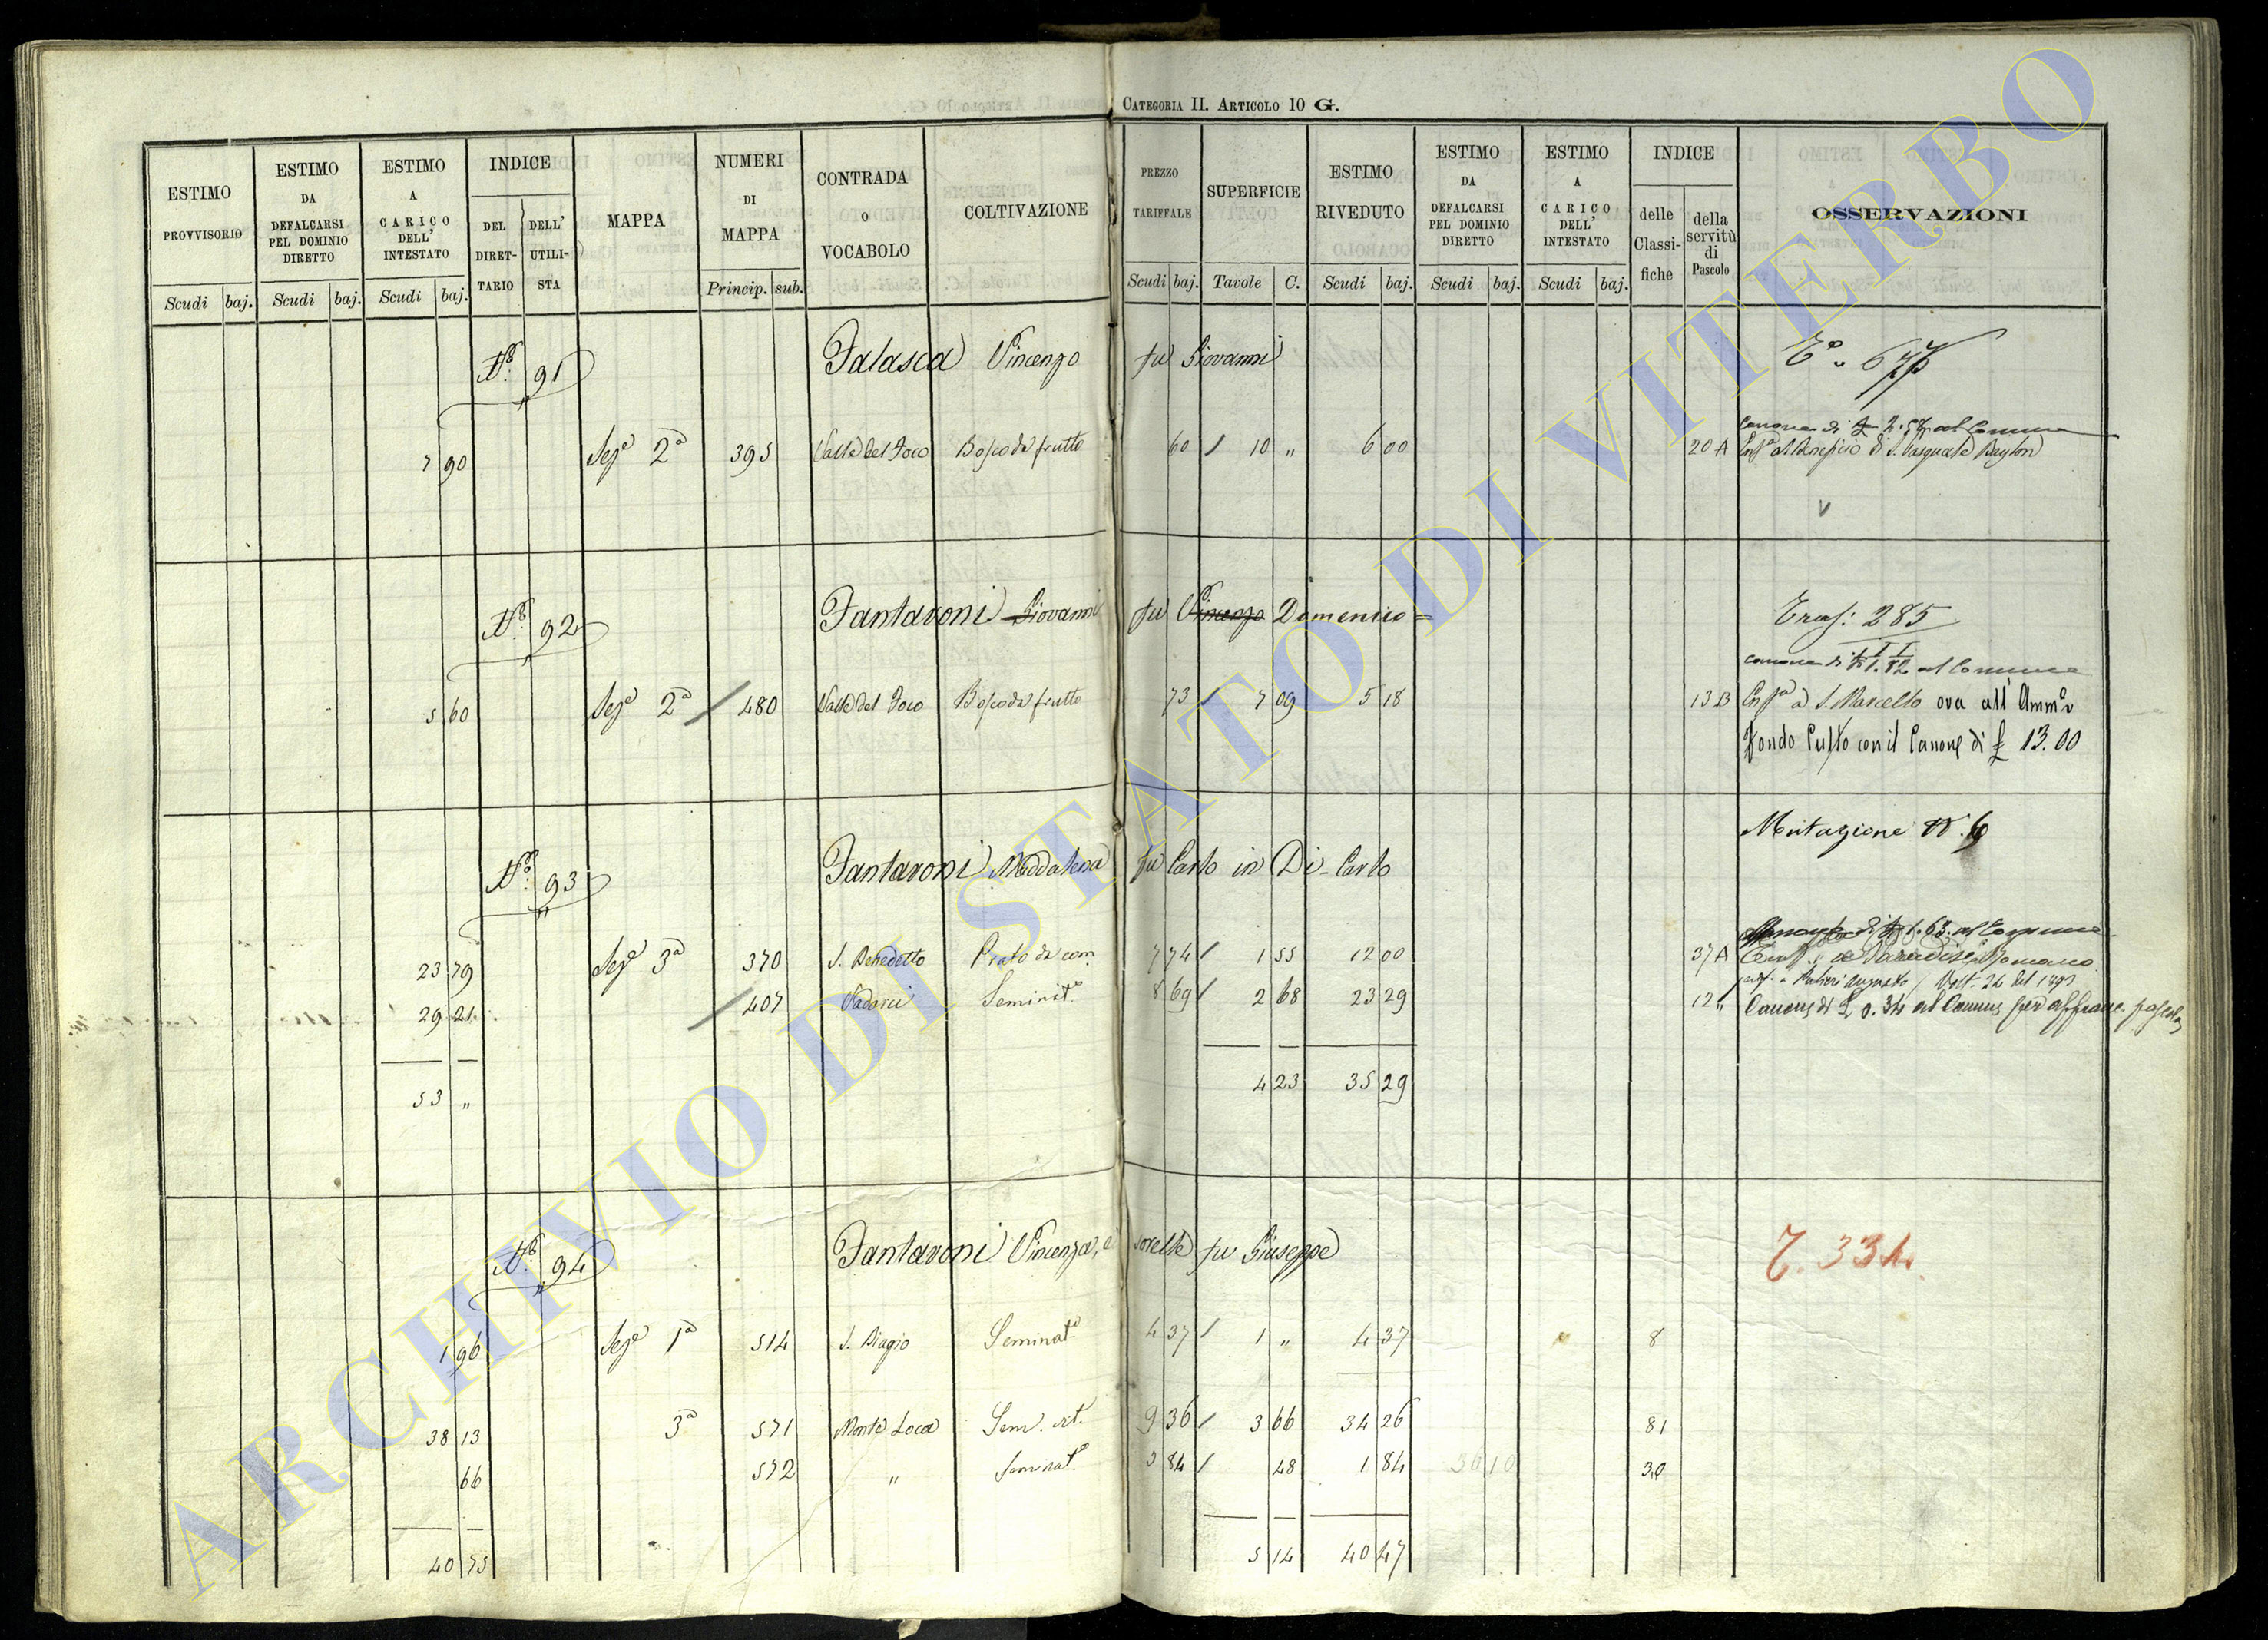 CATEGORIA II. ARTICOLO 10 G.
ESTIMO PROVVISORIO
ESTIMO DA DEFALCARSI PEL DOMINIO DIRETTO
ESTIMO A CARICO DELL' INTESTATO
INDICE
DEL DIRETTARIO
DELL' UTILISTA
MAPPA
NUMERI DI MAPPA
CONTRADA O VOCABOLO
COLTIVAZIONE
PREZZO TARIFFALE
SUPERFICIE
ESTIMO RIVEDUTO
ESTIMO DA DEFALCARSI PEL DOMINIO DIRETTO
ESTIMO A CARICO DELL' INTESTATO
INDICE
delle Classifiche
della servitù di Pascolo
OSSERVAZIONI
Scudi baj. Scudi baj. Scudi baj. Princip. sub. Scudi baj. Tavole C. Scudi baj. Scudi baj. Scudi baj.
N.° 91 Falasca Vincenzo fu Giovanni
canone di £ 2.57 al Comune
7 90 Sez.e 2a 395 Valle del Foco Bosco da frutto 60 / 10 " 6 00 20 A Enf.a al Beneficio di S. Pasquale Baylon
V
N.° 92 Fantaroni Giovanni fu Vincenzo Domenico = Trasf: 285
canone di £ 1.82 al Comune
5 60 Sez.e 2a / 480 Valle del Foco Bosco da frutto 73 / 7 09 5 18 13 B Enf.a a S. Marcello ora all' Amm.e
Fondo Culto con il Canone di £ 13.00
Mutazione N. 6
N.° 93 Fantaroni Maddalena fu Carlo in Di-Carlo
23 79 Sez.e 3a 370 S. Benedetto Prato da com. 7 74 / 1 55 12 00 37 A
29 21 / 407 Vadarci Seminat.o 8 69 / 2 68 23 29 12 " Canone di £ 0.34 al Comune per affranc. pascolo
53 " 4 23 35 29
N.° 94 Fantaroni Vincenza, e sorelle fu Giuseppe T. 334.
1 96 Sez.e 1a 514 S. Biagio Seminat.o 4 37 / 1 " 4 37 8
38 13 3a 571 Monte Loca Sem. vit. 9 36 / 3 66 34 26 81
66 572 " Seminat.o 3 84 / 48 1 84 30
40 75 5 14 40 47
ARCHIVIO DI STATO DI VITERBO